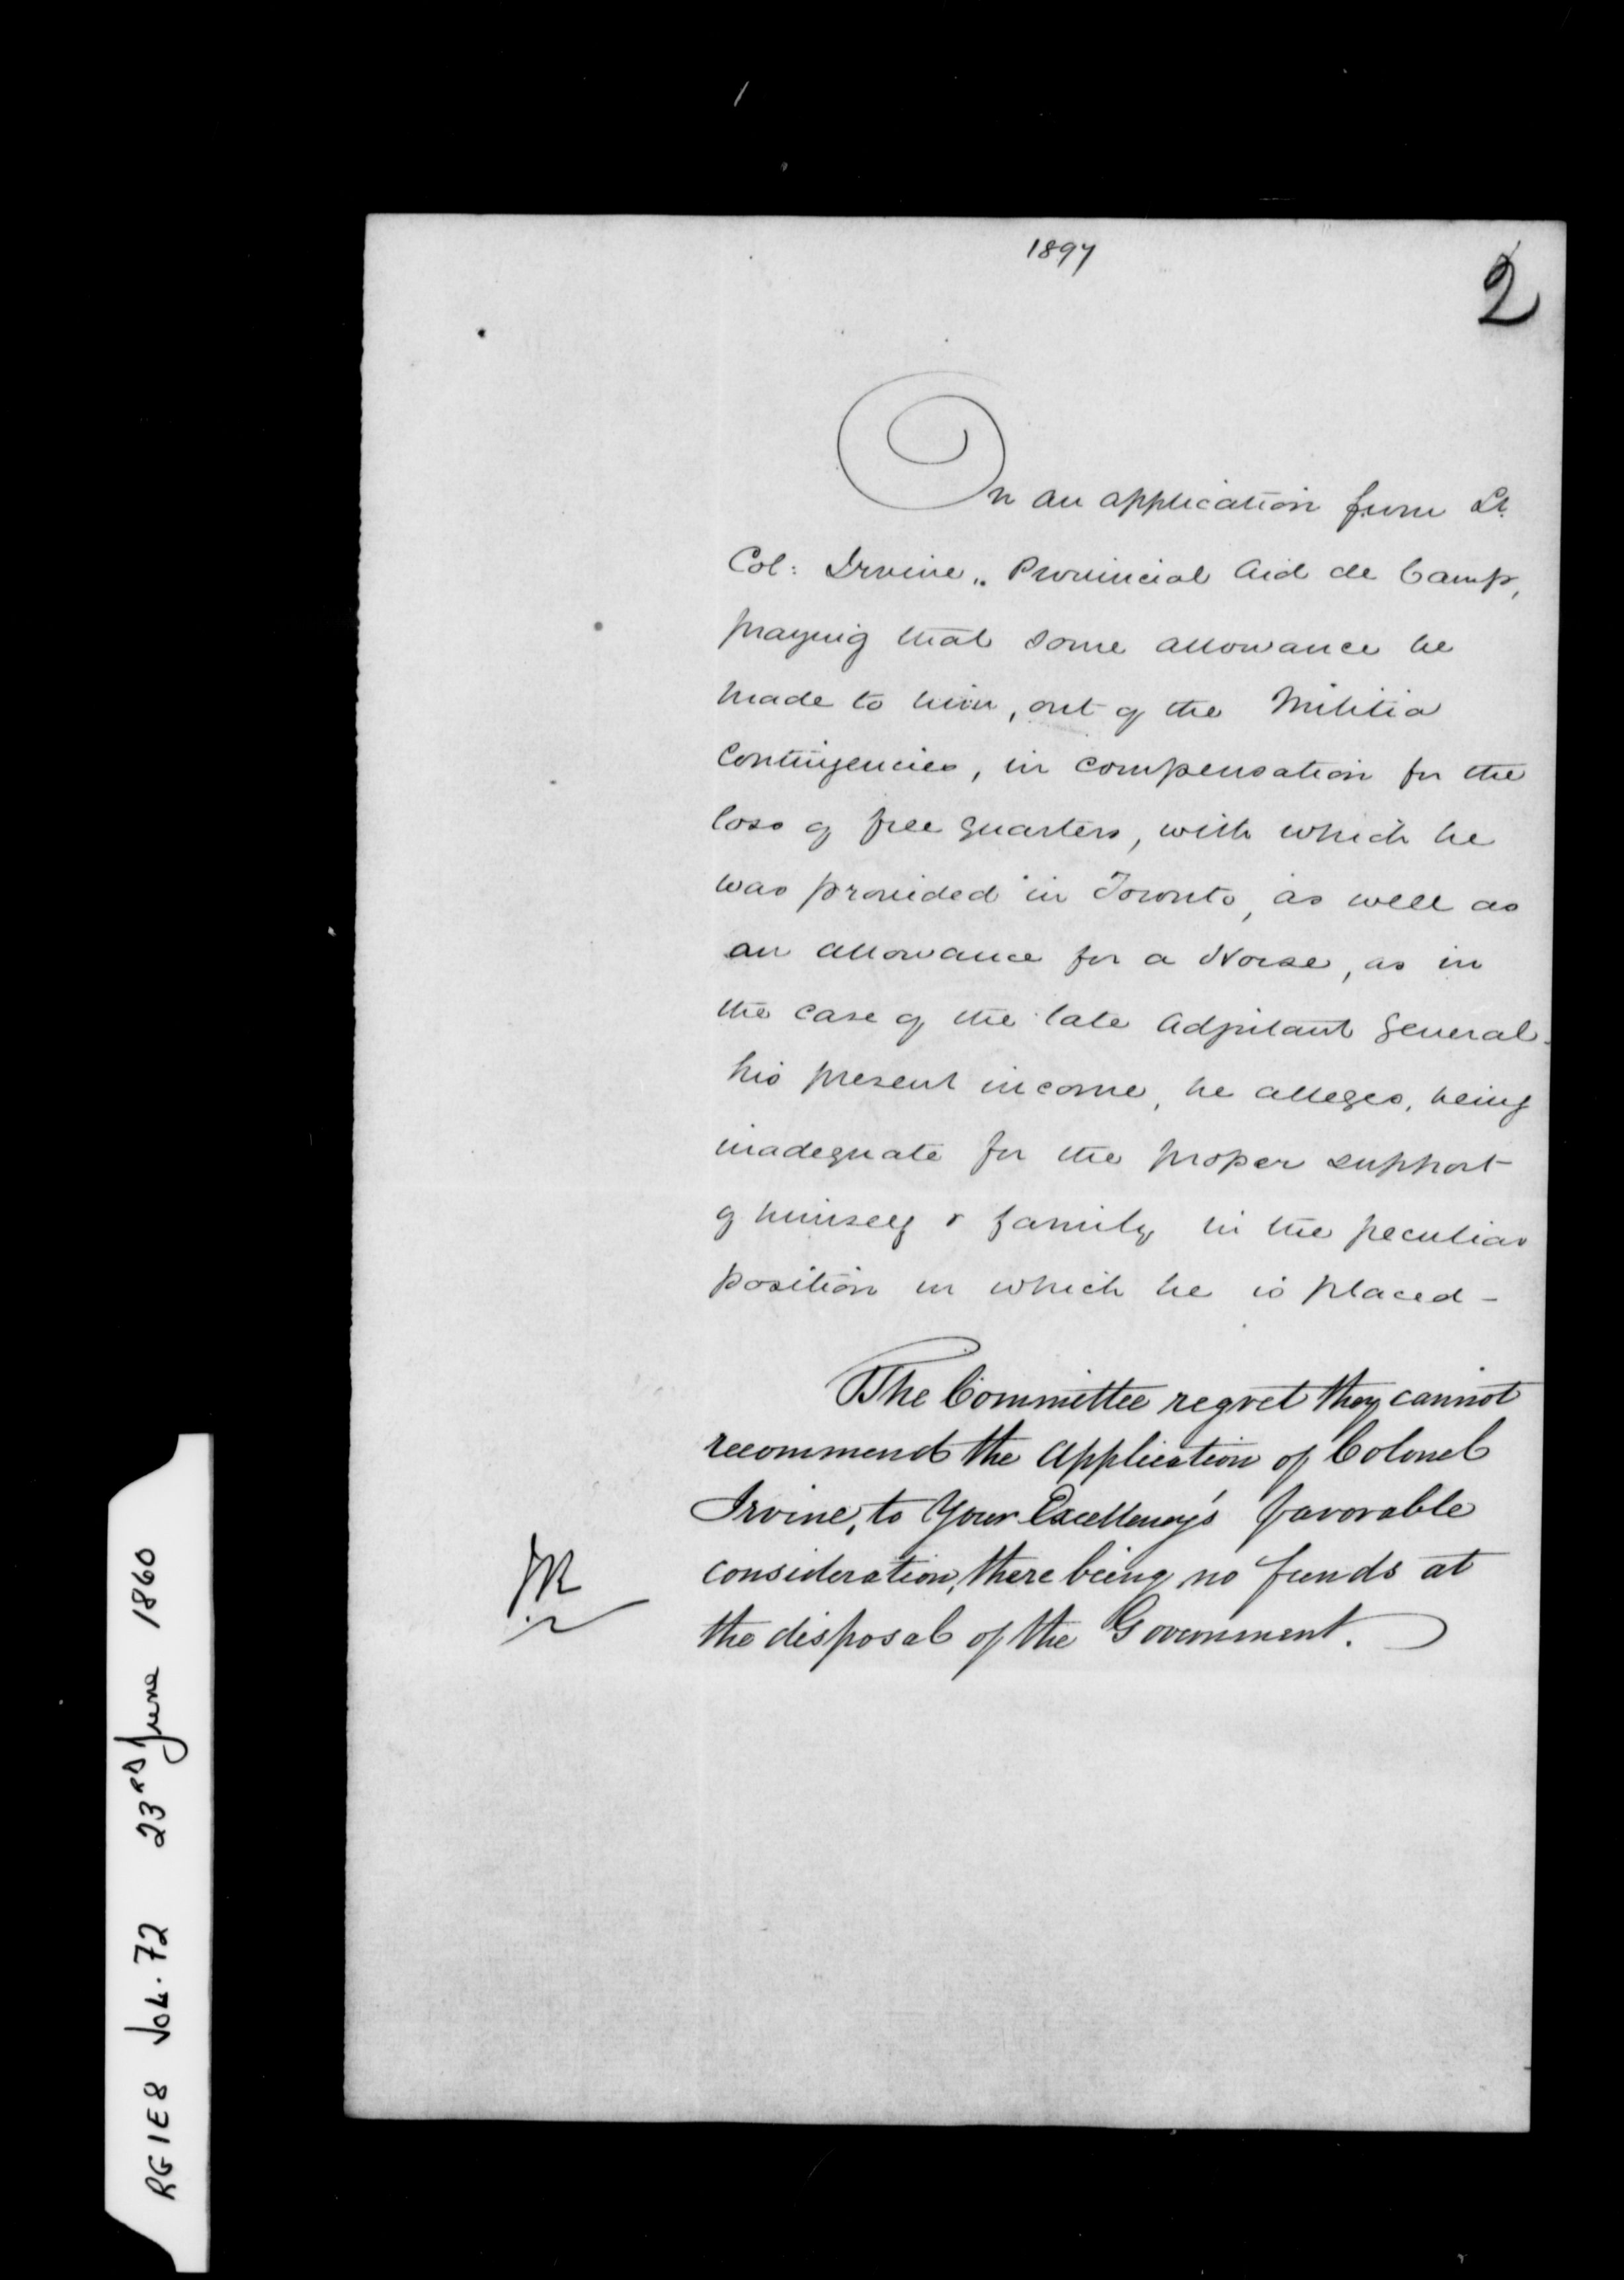 1897
2
On an application from Lt.
Col: Irvine, Provincial Aid de Camp,
praying that some allowance be
made to him, out of the Militia
Contingencies, in compensation for the
loss of free quarters, with which he
was provided in Toronto, as well as
an allowance for a Horse, as in
the case of the late Adjutant General.
his present income, he alleges, being
inadequate for the proper support
of himself & family in the peculiar
position in which he is placed -
The Committee regret they cannot
recommend the Application of Colonel
Irvine, to Your Excellency's favorable
consideration, there being no funds at
the disposal of the Government.
RG1E8 VOL. 72 23RD June 1860